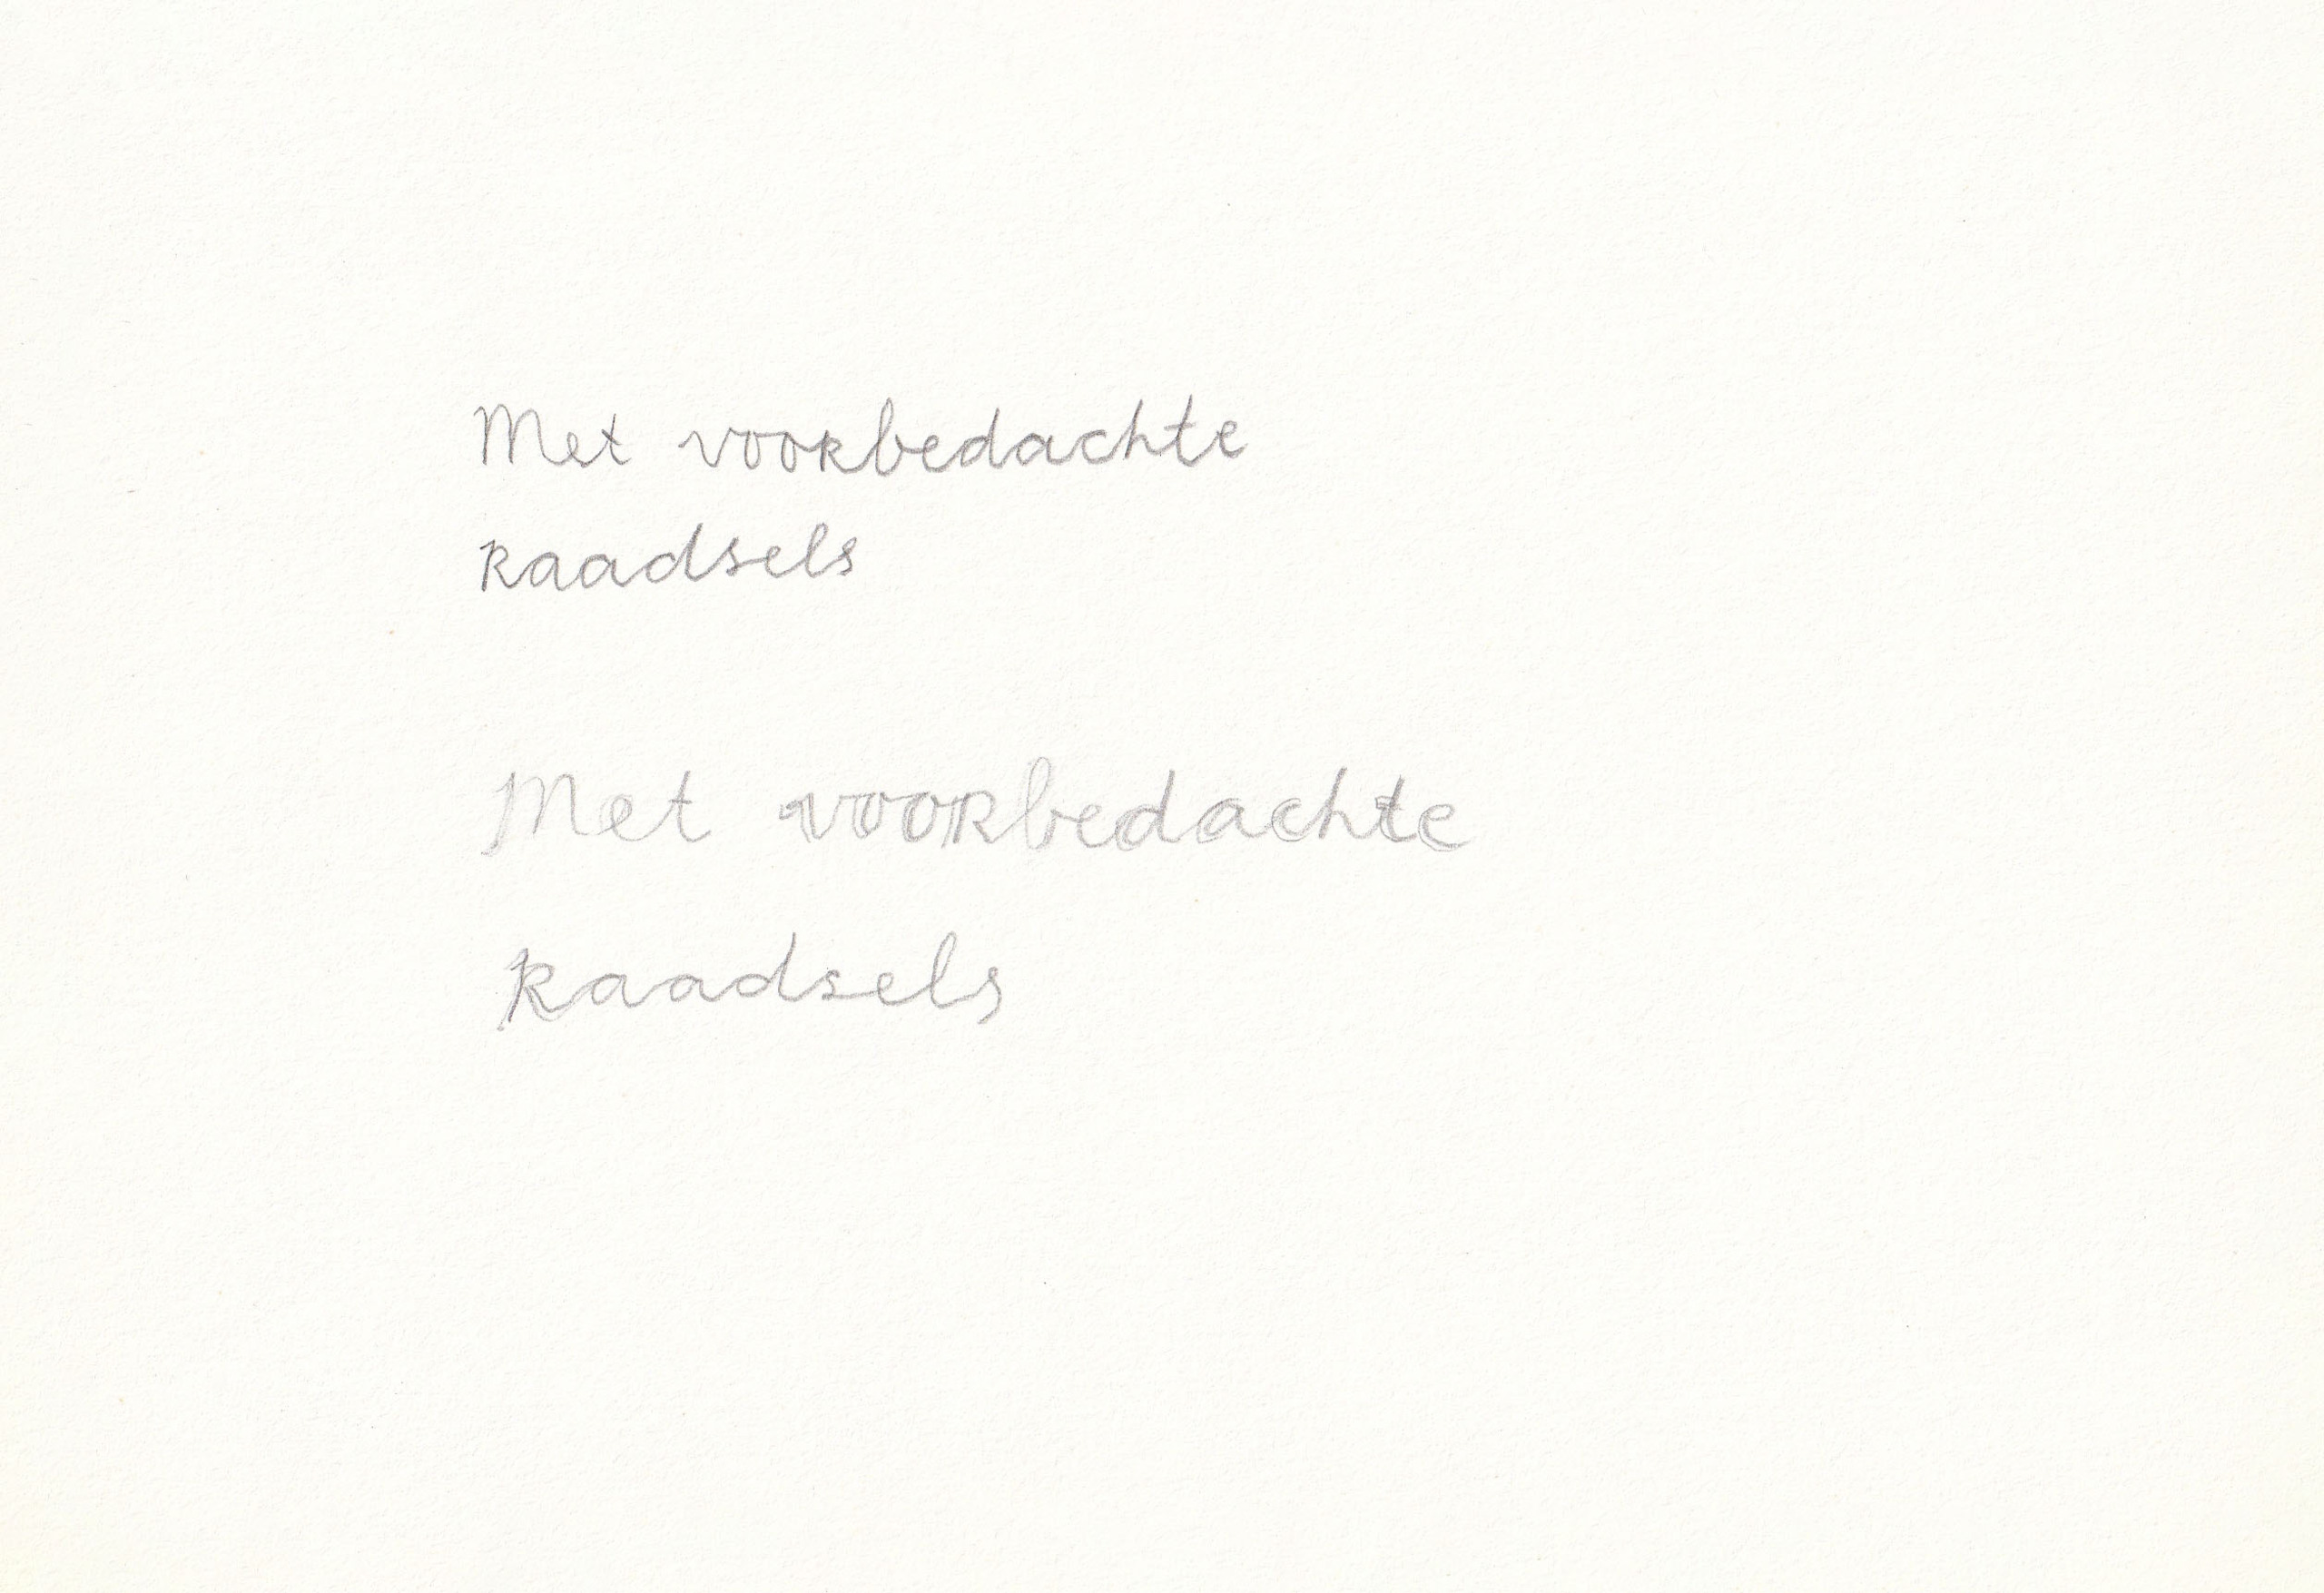 Met voorbedachte
raadsels
Met voorbedachte
raadsels